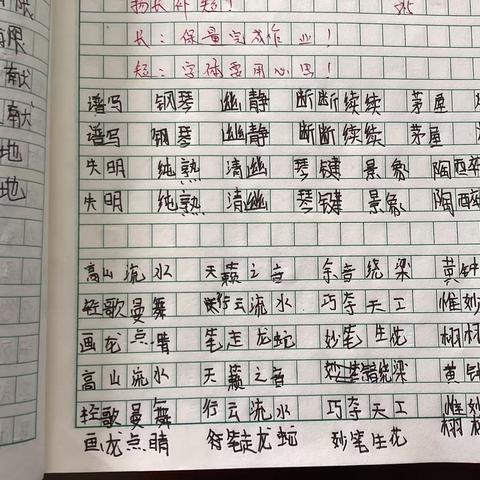 扬长补短！
长：保量完成作业！
短：字体要用心思！
谱写 钢琴 幽静 断断续续 茅屋
谱写 钢琴 幽静 断断续续 茅屋
失明 纯熟 清幽 琴键 景象 陶醉
失明 纯熟 清幽 琴键 景象 陶醉
高山流水 天籁之音 余音绕梁 黄钟
轻歌曼舞 行云流水 巧夺天工 惟妙
画龙点睛 笔走龙蛇 妙笔生花 栩栩
高山流水 天籁之音 绕梁 黄钟
轻歌曼舞 行云流水 巧夺天工 惟妙
画龙点睛 笔走龙蛇 妙笔生花 栩栩
献
献
地
地